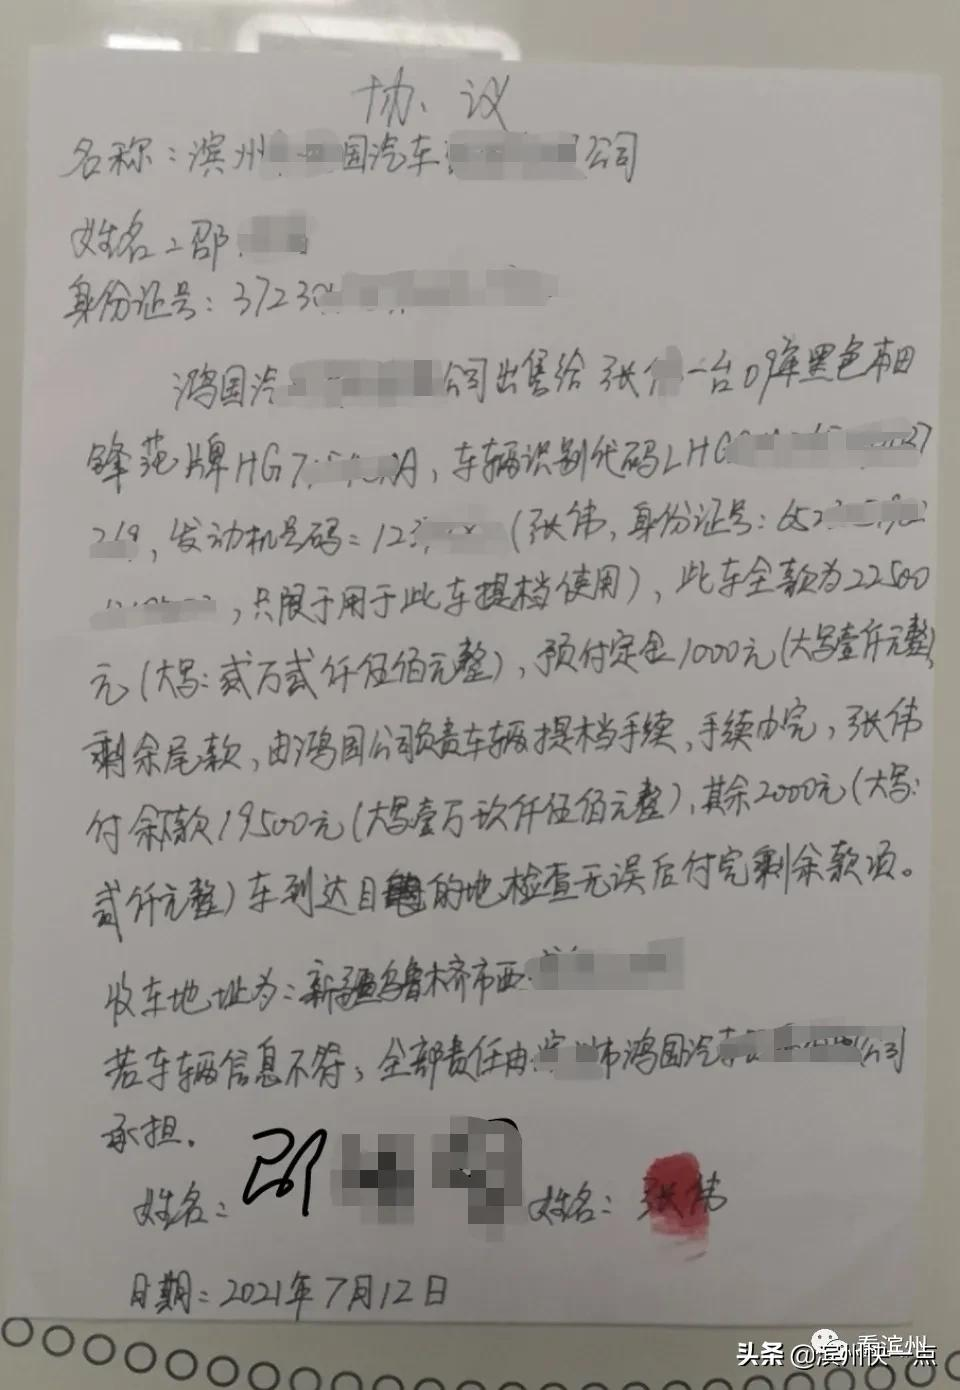 协议
名称：滨州 国汽车 公司
姓名：邵
身份证号：3723
鸿国汽 公司出售给张伟一台09年黑色本田
锋范牌HG7 A，车辆识别代码LHG 27
219，发动机号码：123 （张伟，身份证号：652
，只限于用于此车提档使用），此车全款为22500
元（大写：贰万贰仟伍佰元整），预付定金1000元（大写壹仟元整），
剩余尾款，由鸿国公司负责车辆提档手续，手续办完，张伟
付余款19500元（大写壹万玖仟伍佰元整），其余2000元（大写：
贰仟元整）车到达目的地检查无误后付完剩余款项。
收车地址为：新疆乌鲁木齐市西
若车辆信息不符，全部责任由滨州市鸿国汽车 公司
承担。
姓名：邵 姓名：张伟
日期：2021年7月12日
看滨州
头条 @滨州快一点